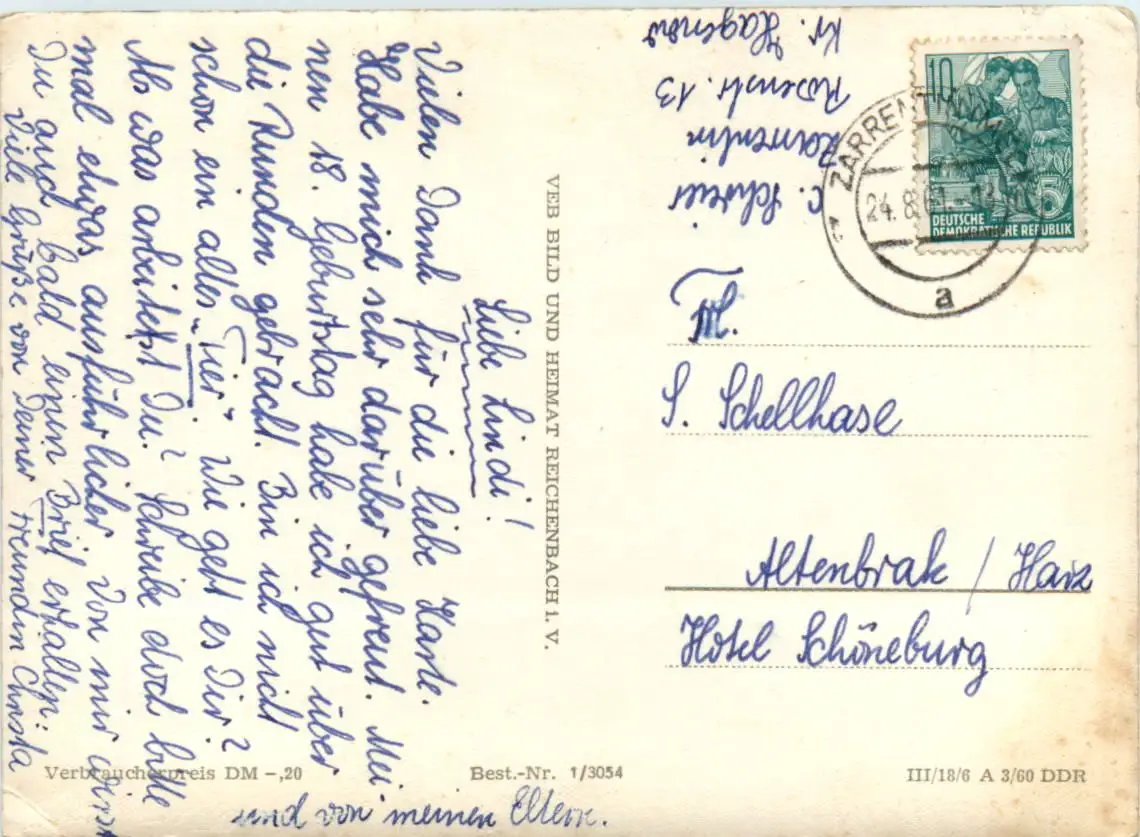 Liebe Lindi!
Vielen Dank für die liebe Karte.
Habe mich sehr darüber gefreut. Mei
nen 18. Geburtstag habe ich gut über
die Runden gebracht. Bin ich nicht
schon ein altes „Tier“. Wie geht es Dir?
Als was arbeitest Du? Schreibe doch bitte
mal etwas ausführlicher. Von mir wirst
Du auch bald einen Brief erhalten.
Viele Grüße von Deiner Freundin Christa
und von meinen Eltern.
VEB BILD UND HEIMAT REICHENBACH i. V.
C. Schreier
Zarrentin
Rosenstr. 13
Kr. Hagenow
ZARRENTIN
24.8.61
a
10
5
DEUTSCHE
DEMOKRATISCHE REPUBLIK
S. Schellhase
Altenbrak / Harz
Hotel Schöneburg
Verbraucherpreis DM -,20
Best.-Nr. 1/3054
III/18/6 A 3/60 DDR